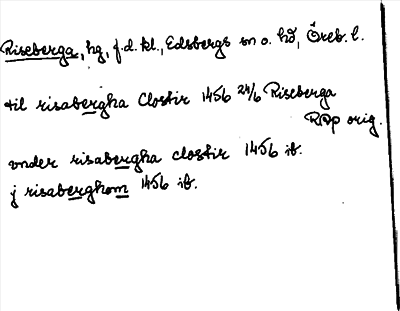 Riseberga, hg, f.d. kl., Edsbergs sn o. hd, Öreb. l.
til risabergha Clostir 1456 24/6 Riseberga
RAp orig.
vnder risabergha clostir 1456 ib.
j risaberghom 1456 ib.